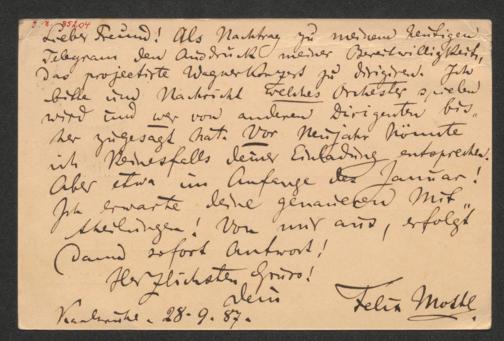 Lieber Freund! Als Nachtrag zu meinem heutigen
Telegram den Ausdruck meiner Bereitwilligkeit,
das projectirte Wagnerkonzert zu dirigiren. Ich
bitte um Nachricht welches Orchester spielen
wird und wer von anderen Dirigenten bis-
her zugesagt hat. Vor Neujahr könnte
ich keinesfalls deiner Einladung entsprechen.
Aber etwa im Anfange des Januar!
Ich erwarte deine genaueren Mit-
theilungen! Von mir aus, erfolgt
dann sofort Antwort!
Herzlichsten Gruss!
Dein
Felix Mottl
Karlsruhe. 28-9.87.